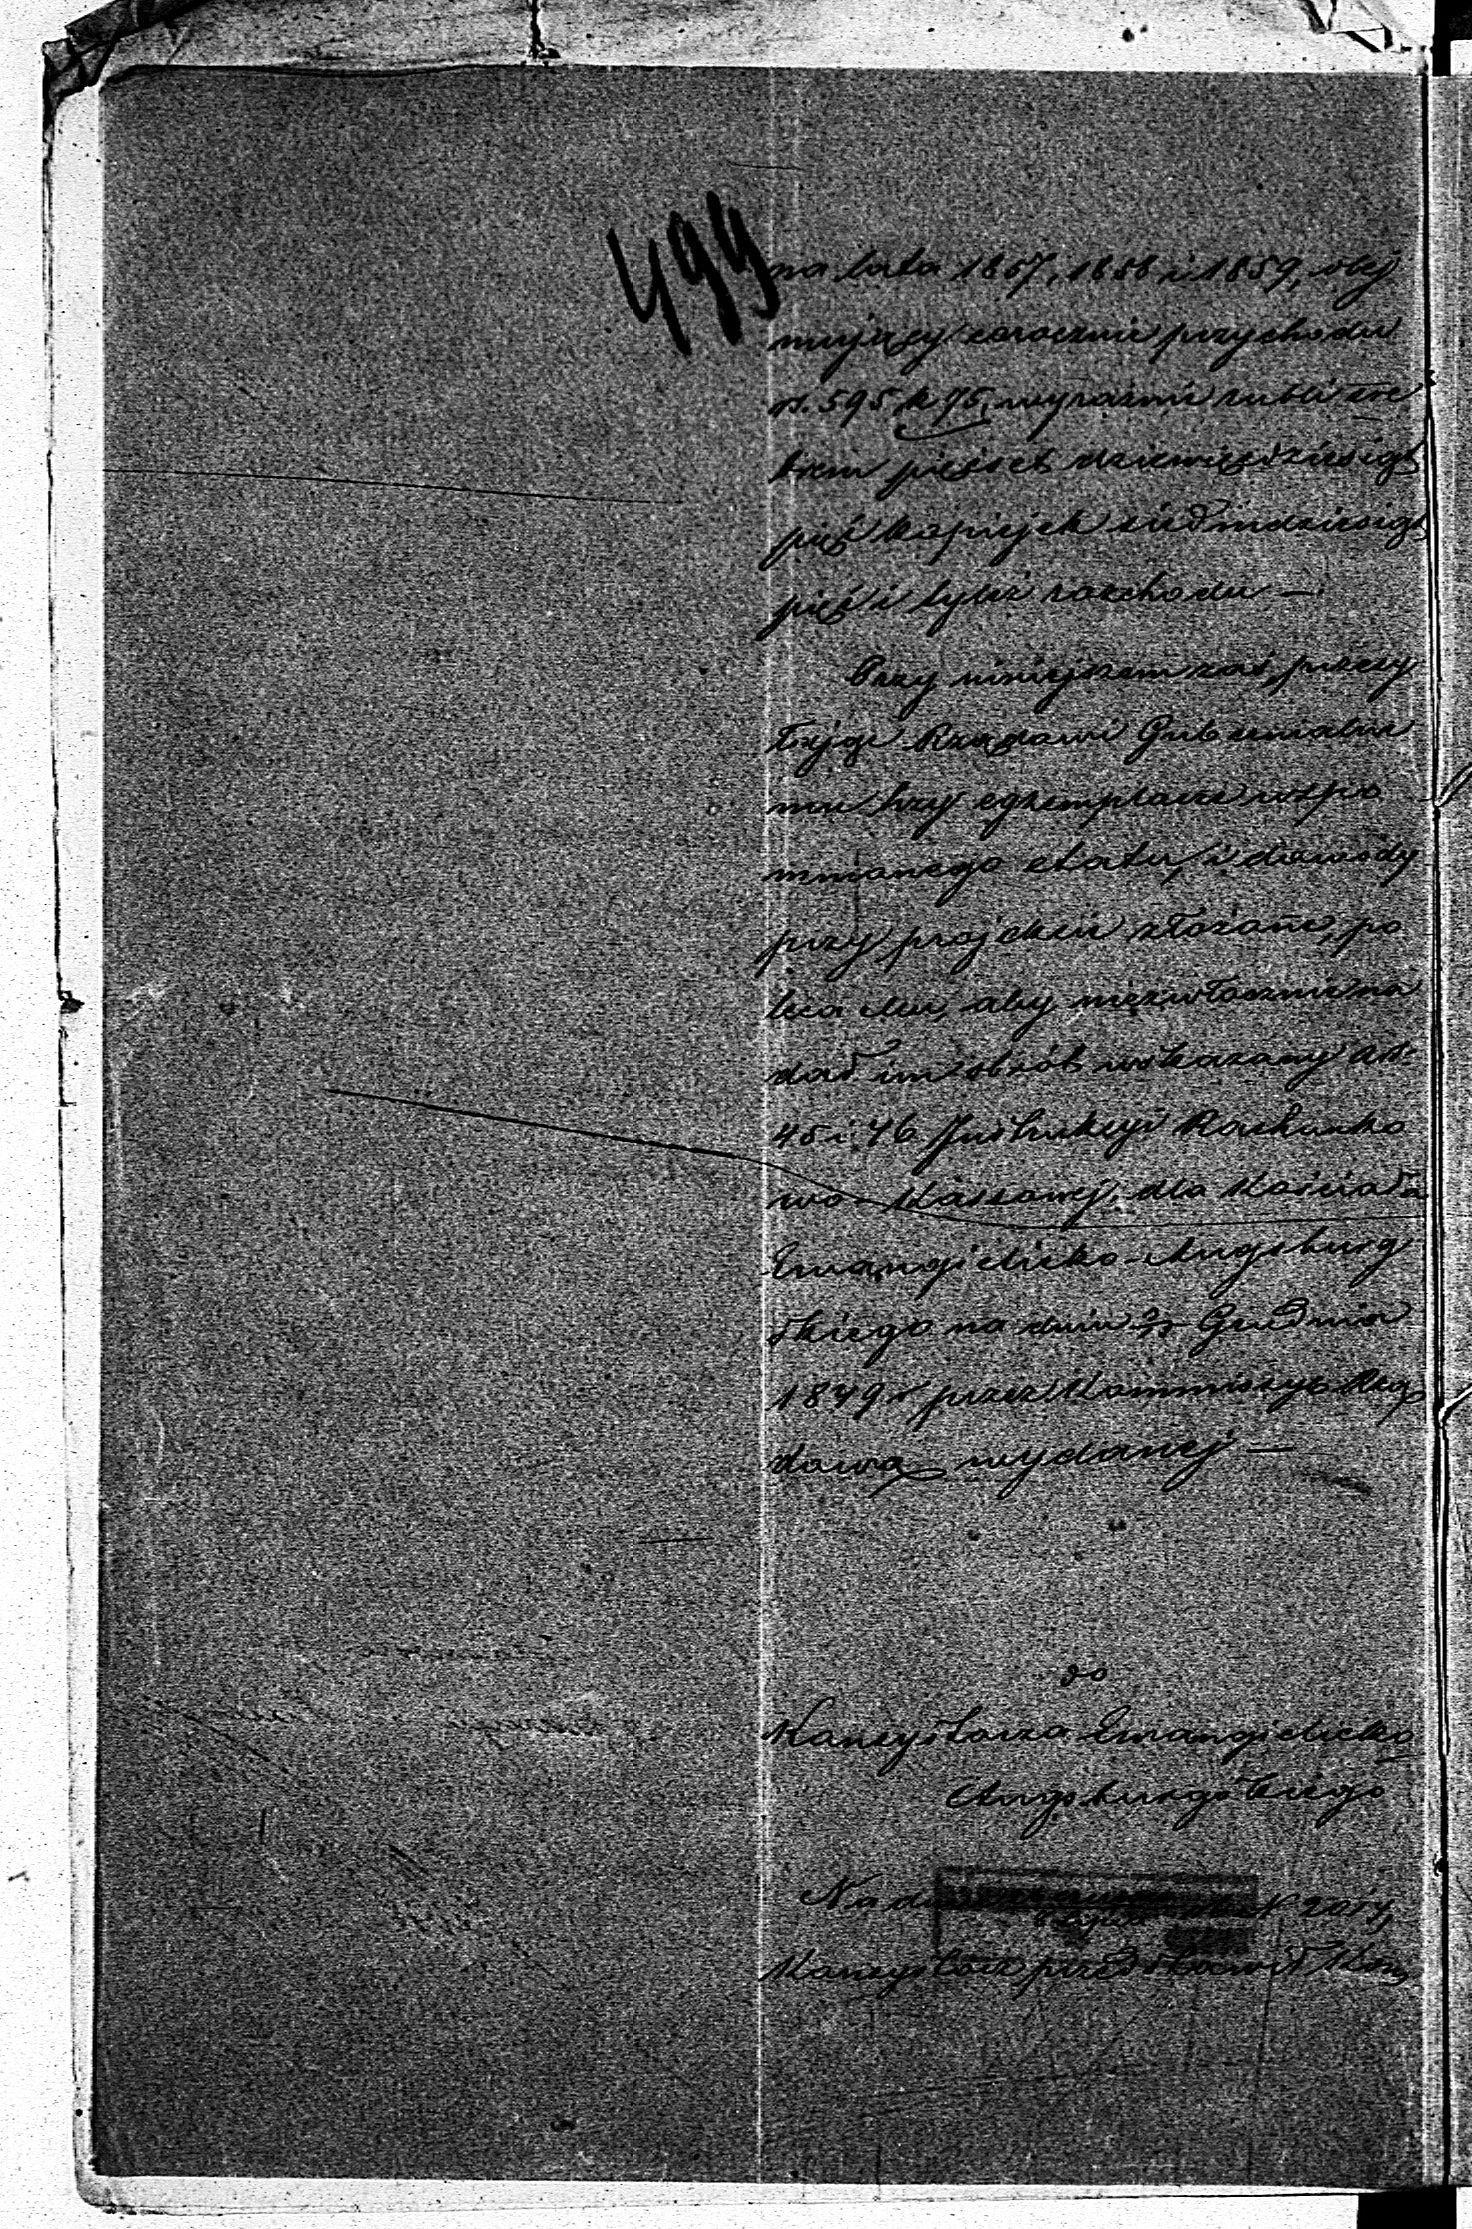 499
na lata 1857, 1858 i 1859, obej
mujący corocznie przychodu
rs. 595 k 75, wyraźnie rubli sre
brem pięćset dziewięćdziesiąt
pięć kopiejek siedmdziesiąt
pięć i tyleż rozchodu —
Przy niniejszem zaś przesy
łając Rządowi Gubernialne
mu trzy egzemplarze wspo
mnionego etatu, i dowody
przy projekcie złożone, po
leca mu, aby niezwłocznie na
dał im obrót wskazany art.
45 i 46 Instrukcyi Rachunko
wo-Kassowej, dla Kościoła
Ewangielicko-Augsburg
skiego na dniu Grudnia
1849 r przez Kommissyę Rzą
dową wydanej —
do
Konsystorza Ewangielicko
Augsburgskiego
Na
Konsystorz przedstawił Kom